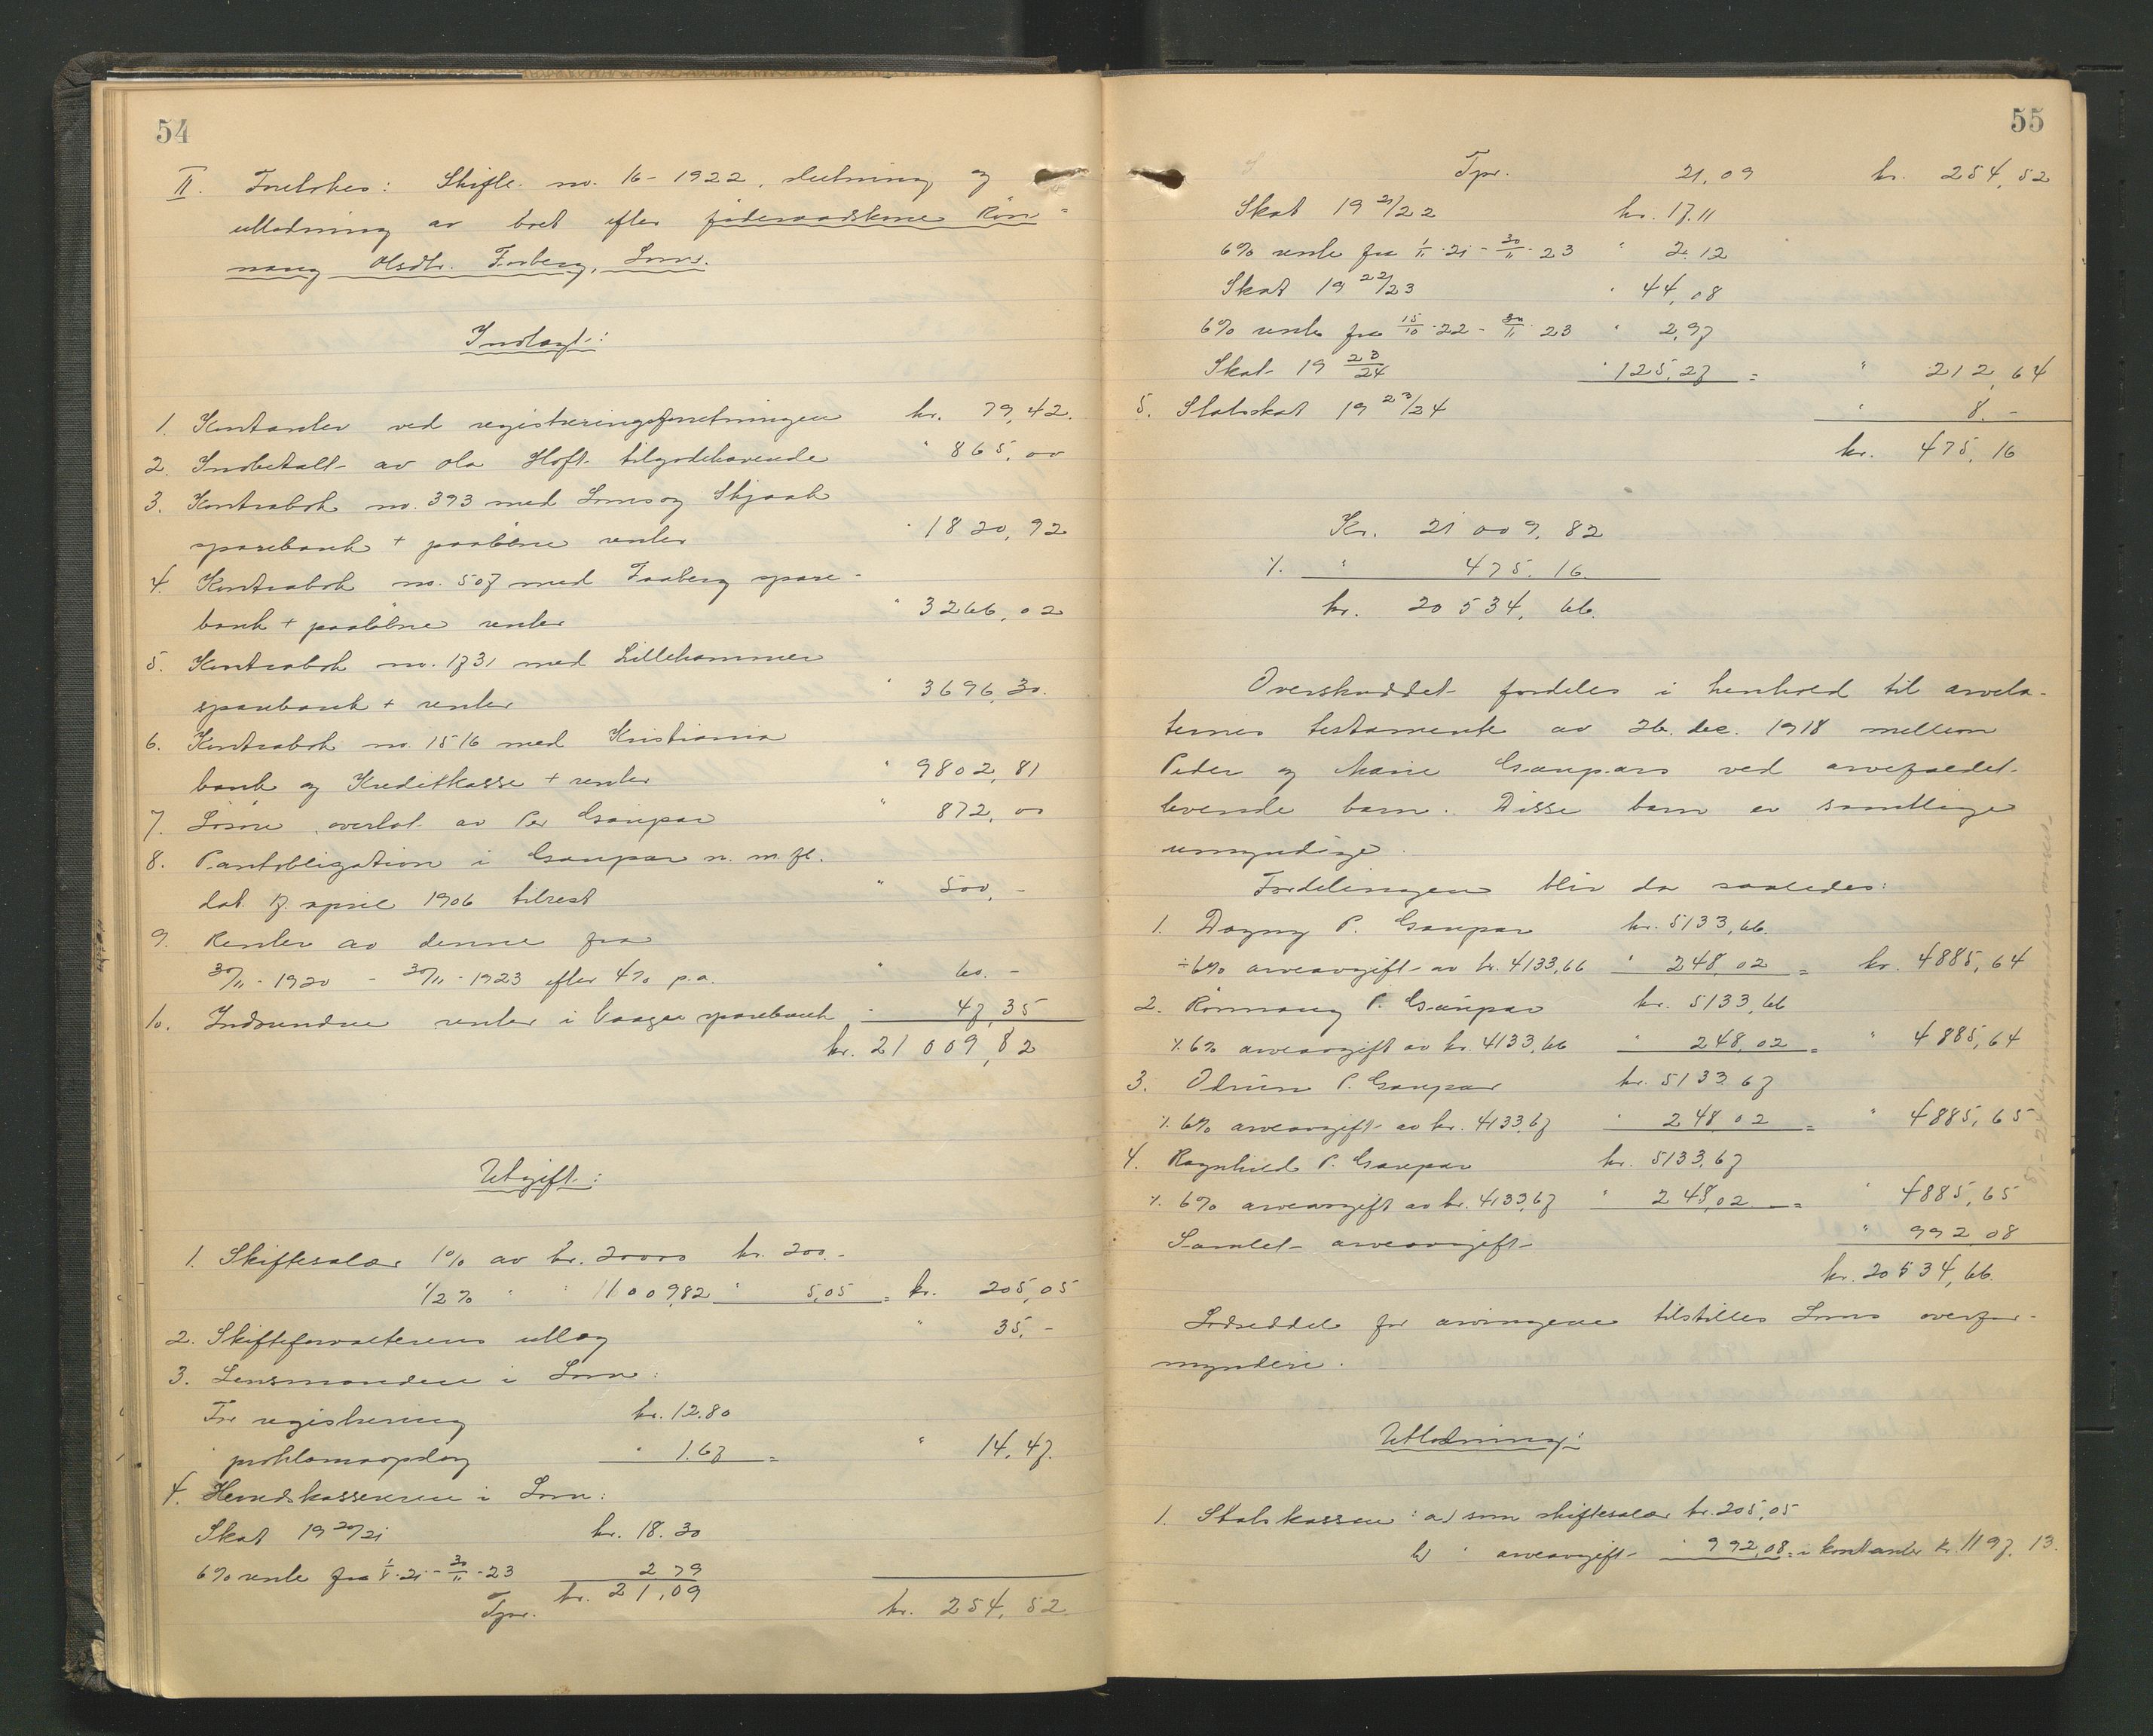 54
II. Foretokes: Skifte no. 16 - 1922, slutning og
utlodning av boet efter føderaadskone Røn=
naug Olsdtr. Forberg, Lom.
Indtægt:
1. Kontanter ved registreringsforretningen kr. 79,42.
2. Indbetalt av Ola Hoft tilgodehavende " 865,00
3. Kontrabok no. 393 med Loms og Skjaak
sparebank + paaløpne renter " 1820,92
4. Kontrabok no. 507 med Faaberg spare-
bank + paaløpne renter " 3266,02
5. Kontrabok no. 1731 med Lillehammer
sparebank + renter " 3696,30.
6. Kontrabok no. 1516 med Kristiania
bank og Kreditkasse + renter " 9802,81
7. Løsøre overlat av Per Graupar " 872,00
8. Pantobligation i Graupar n. m. fl.
dat. 17. april 1906 tilrest " 500,-
9. Renter av denne fra
30/11 - 1920 - 30/11 - 1923 efter 4% p.a. " 60.-
10. Indvundne renter i Vaage sparebank " 47,35
kr. 21 009,82
Utgift:
1. Skiftesalær 1% av kr. 20000 kr. 200.-
1/2 % " " 1009,82 " 5,05 = kr. 205,05
2. Skifteforvalterens utlæg " 35,-
3. Lensmanden i Lom:
For registrering kr. 12.80
" proklamaopslag " 1.67 = " 14,47.
4. Herredskassereren i Lom:
Skat 19 20/21 kr. 18.30
6% rente fra 1/5.21 - 30/11 - 23 2 79
Tpr. kr. 21,09 kr. 254,52
55
Tpr. 21,09 kr. 254,52
Skat 19 21/22 kr. 17.11
6% rente fra 1/11.21 - 30/11.23 " 2.12
Skat 19 22/23 " 44,08
6% rente fra 15/10.22 - 30/11.23 " 2,97
Skat 19 23/24 " 125,27 = " 212,64
5. Statsskat 19 23/24 " 8.-
kr. 475,16
Kr. 21 009,82
÷ " 475,16
kr. 20 534,66.
Overskuddet fordeles i henhold til arvela-
ternes testamente av 26. dec. 1918 mellem
Peder og Marie Graupars ved arvefaldet
levende barn. Disse barn er samtlige
umyndige.
Fordelingen blir da saaledes:
1. Dagny P. Graupar kr. 5133,66.
÷ 6% arveavgift av kr. 4133,66 " 248,02 = kr. 4885,64
2. Rønnaug P. Graupar kr. 5133,66
÷ 6% arveavgift av kr. 4133,66 " 248,02 = " 4885,64
3. Odrun P. Graupar kr. 5133,67
÷ 6% arveavgift av kr. 4133,67 " 248,02 = " 4885,65
4. Ragnhild P. Graupar kr. 5133,67
÷ 6% arveavgift av kr. 4133,67 " 248,02 = " 4885,65
Samlet arveavgift " 992,08
kr. 20 534,66.
Lodseddel for arvingene tilstilles Loms overfor-
mynderi.
Utlodning:
1. Statskassen: a) som skiftesalær kr. 205,05
b) " arveavgift " 992,08 = i kontanter kr. 1197,13.